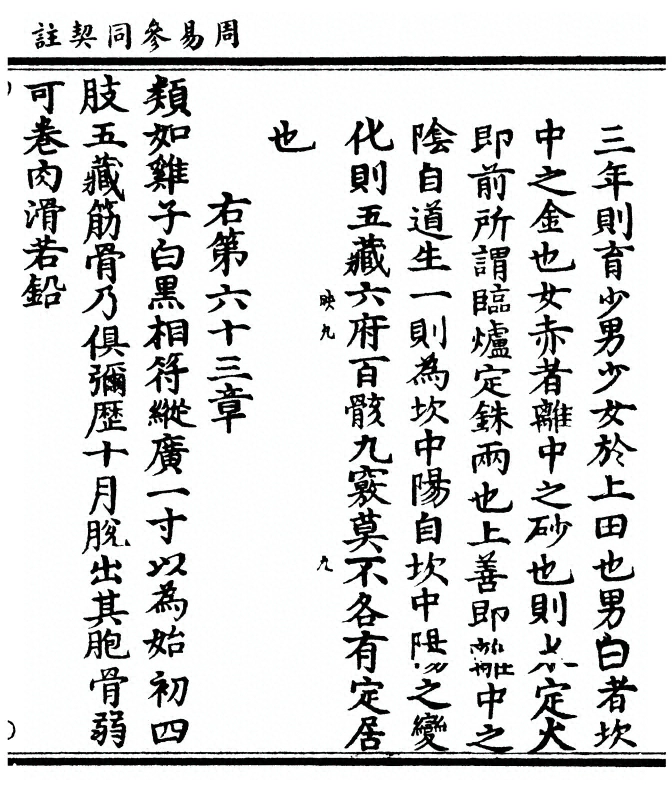 周易參同契註
三年則育少男少女於上田也男白者坎
中之金也女赤者離中之砂也則水定火
即前所謂臨爐定銖兩也上善即離中之
陰自道生一則為坎中陽自坎中陽之變
化則五藏六府百骸九竅莫不各有定居
映九
九
也
右第六十三章
類如雞子白黑相符縱廣一寸以為始初四
肢五藏筋骨乃俱彌歷十月脫出其胞骨弱
可卷肉滑若鉛